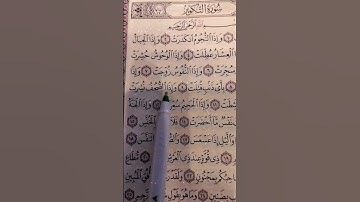 سُورَةُ التَّكْوِيرِ
بِسْمِ اللَّهِ الرَّحْمَٰنِ الرَّحِيمِ
وَإِذَا النُّجُومُ انكَدَرَتْ ٢ وَإِذَا الْجِبَالُ
الْعِشَارُ عُطِّلَتْ ٤ وَإِذَا الْوُحُوشُ حُشِرَتْ
سُجِّرَتْ ٦ وَإِذَا النُّفُوسُ زُوِّجَتْ ٧ وَإِذَا
بِأَيِّ ذَنبٍ قُتِلَتْ ٩ وَإِذَا الصُّحُفُ نُشِرَتْ
وَإِذَا الْجَحِيمُ سُعِّرَتْ ١٢ وَإِذَا الْجَنَّةُ
نَفْسٌ مَّا أَحْضَرَتْ ١٤ الْخُنَّسِ
وَاللَّيْلِ إِذَا عَسْعَسَ
ذِي قُوَّةٍ عِندَ ذِي الْعَرْشِ مُّطَاعٍ
بِمَجْنُونٍ ٢٢ وَلَقَدْ الْمُبِينِ
بِضَنِينٍ ٢٤ وَمَا هُوَ بِقَوْلِ